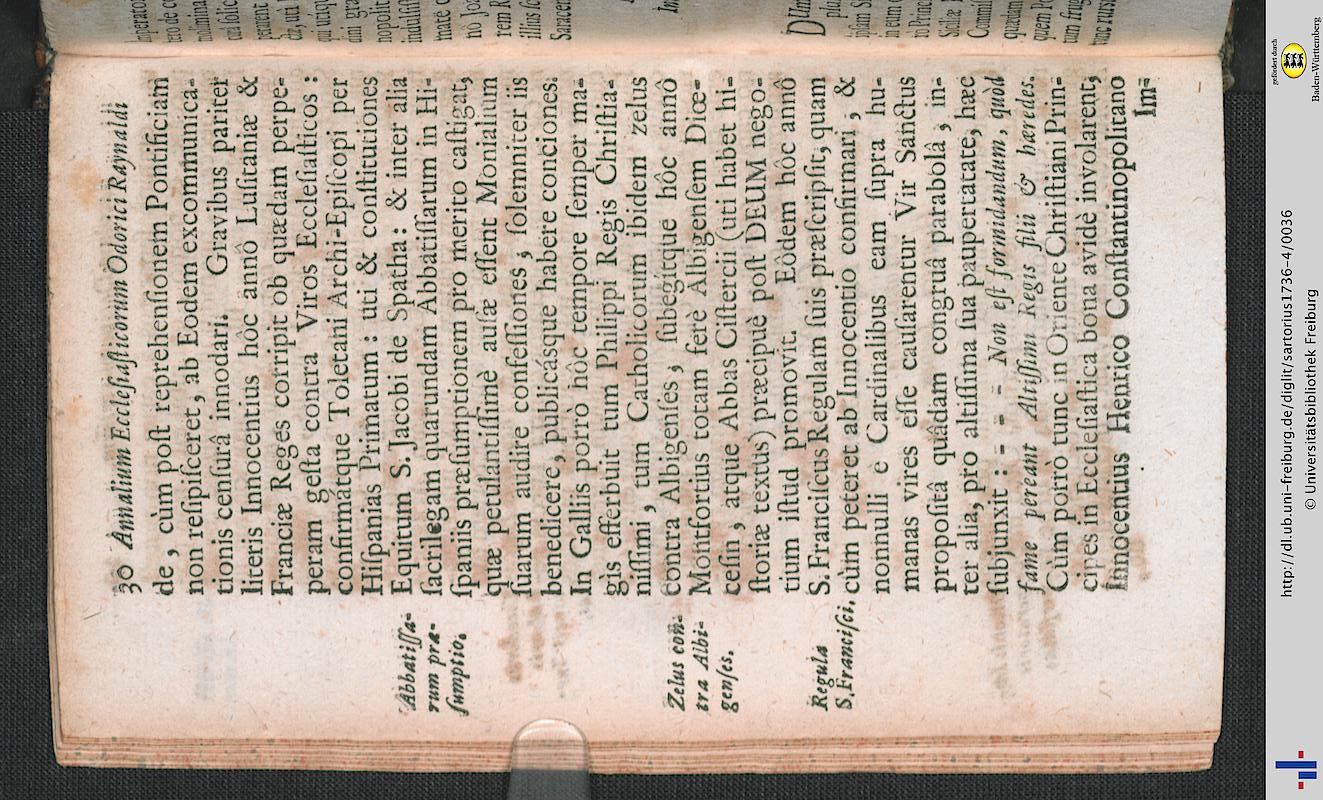 30 Annalium Ecclesiasticorum Odorici Raynaldi
de, cùm post reprehensionem Pontificiam
non resipisceret, ab Eodem excommunica-
tionis censurâ innodari. Gravibus pariter
literis Innocentius hôc annô Lusitaniæ &
Franciæ Reges corripit ob quædam perpe-
peram gesta contra Viros Ecclesiasticos:
confirmátque Toletani Archi-Episcopi per
Hispanias Primatum: uti & constitutiones
Equitum S. Jacobi de Spatha: & inter alia
sacrilegam quarundam Abbatissarum in Hi-
spaniis præsumptionem pro merito castigat,
quæ petulantissimè ausæ essent Monialium
suarum audire confessiones, solemniter iis
benedicere, publicásque habere conciones.
In Galliis porrò hôc tempore semper ma-
gìs efferbuit tum Philippi Regis Christia-
nissimi, tum Catholicorum ibidem zelus
contra Albigenses, subegítque hôc annô
Montfortius totam ferè Albigensem Diœ-
cesin, atque Abbas Cistercii (uti habet hi-
storiæ textus) præcipuè post DEUM nego-
tium istud promovit. Eôdem hôc annô
S. Franciscus Regulam suis præscripsit, quam
cùm peteret ab Innocentio confirmari, &
nonnulli è Cardinalibus eam supra hu-
manas vires esse causarentur Vir Sanctus
propositâ quâdam congruâ parabolâ, in-
ter alia, pro altissima sua paupertatate, hæc
subjunxit: - - - Non est formidandum, quòd
fame pereant Altissimi Regis filii & hæredes.
Cùm porro tunc in Oriente Christiani Prin-
cipes in Ecclesiastica bona avidè involarent,
Innocentius Henrico Constantinopolitano
Im-
Abbatissa-
rum præ-
sumptio.
Zelus con-
tra Albi-
genses.
Regula
S. Francisci.
http://dl.ub.uni-freiburg.de/diglit/sartorius1736-4/0036
© Universitätsbibliothek Freiburg
gefördert durch
Baden-Württemberg